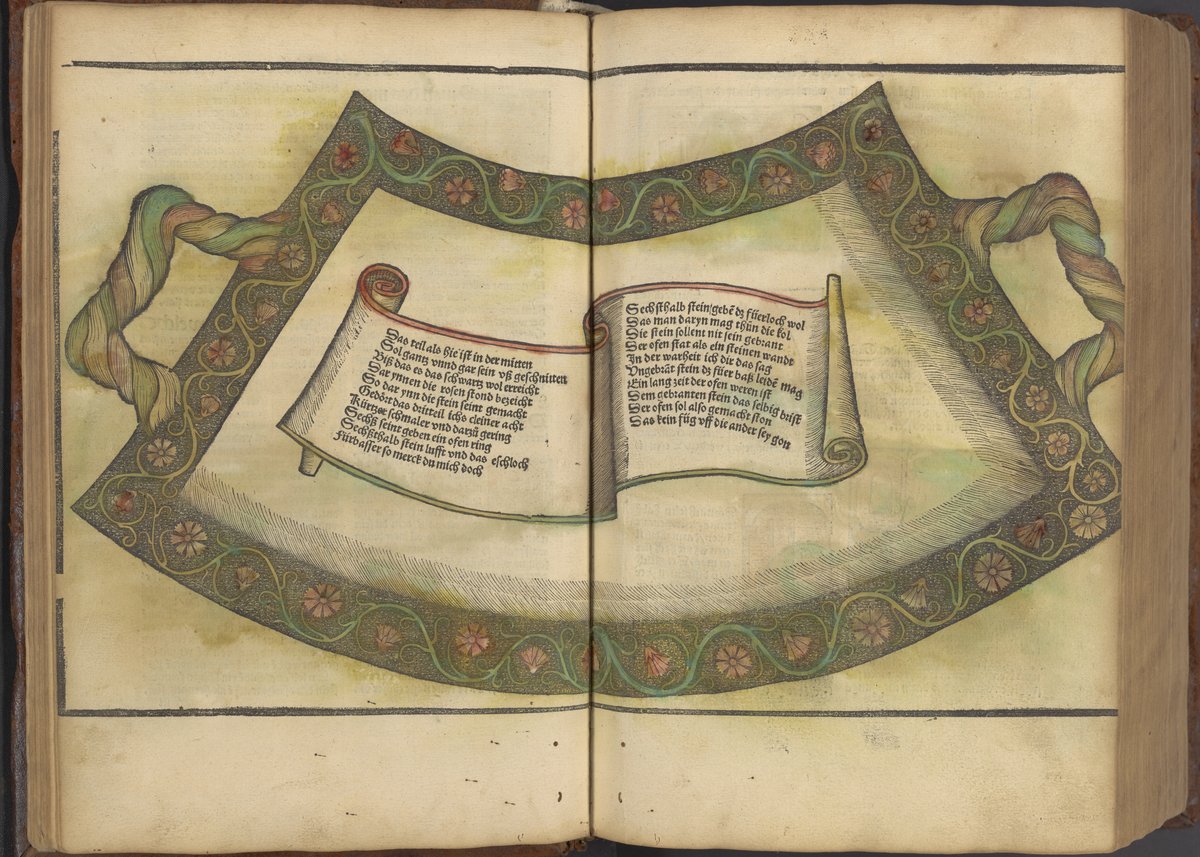 Das teil als hie ist in der mitten
Sol gantz vnnd gar sein vß geschnitten
Biß das es das schwartz wol erreicht
Dar ynnen die rosen stond bezeicht
So dar ynn die stein seint gemacht
Gedört das dritteil ichs cleiner acht
Kürtzer schmaler vnd darzů gering
Sechß seint geben ein ofen ring
Sechßthalb stein lufft vnd das eschloch
Fürbasser so merck du mich doch
Sechsthalb stein/gebẽ dz füerloch wol
Das man daryn mag thůn die kol
Die stein sollent nit sein gebrant
Der ofen stat als ein steinen wandt
In der warheit ich dir das sag
Vngebrãt stein dz füer baß leidẽ mag
Ein lang zeit der ofen weren ist
Dem gebranten stein das selbig brist
Der ofen sol also gemacht ston
Das kein fůg vff die ander sey gon